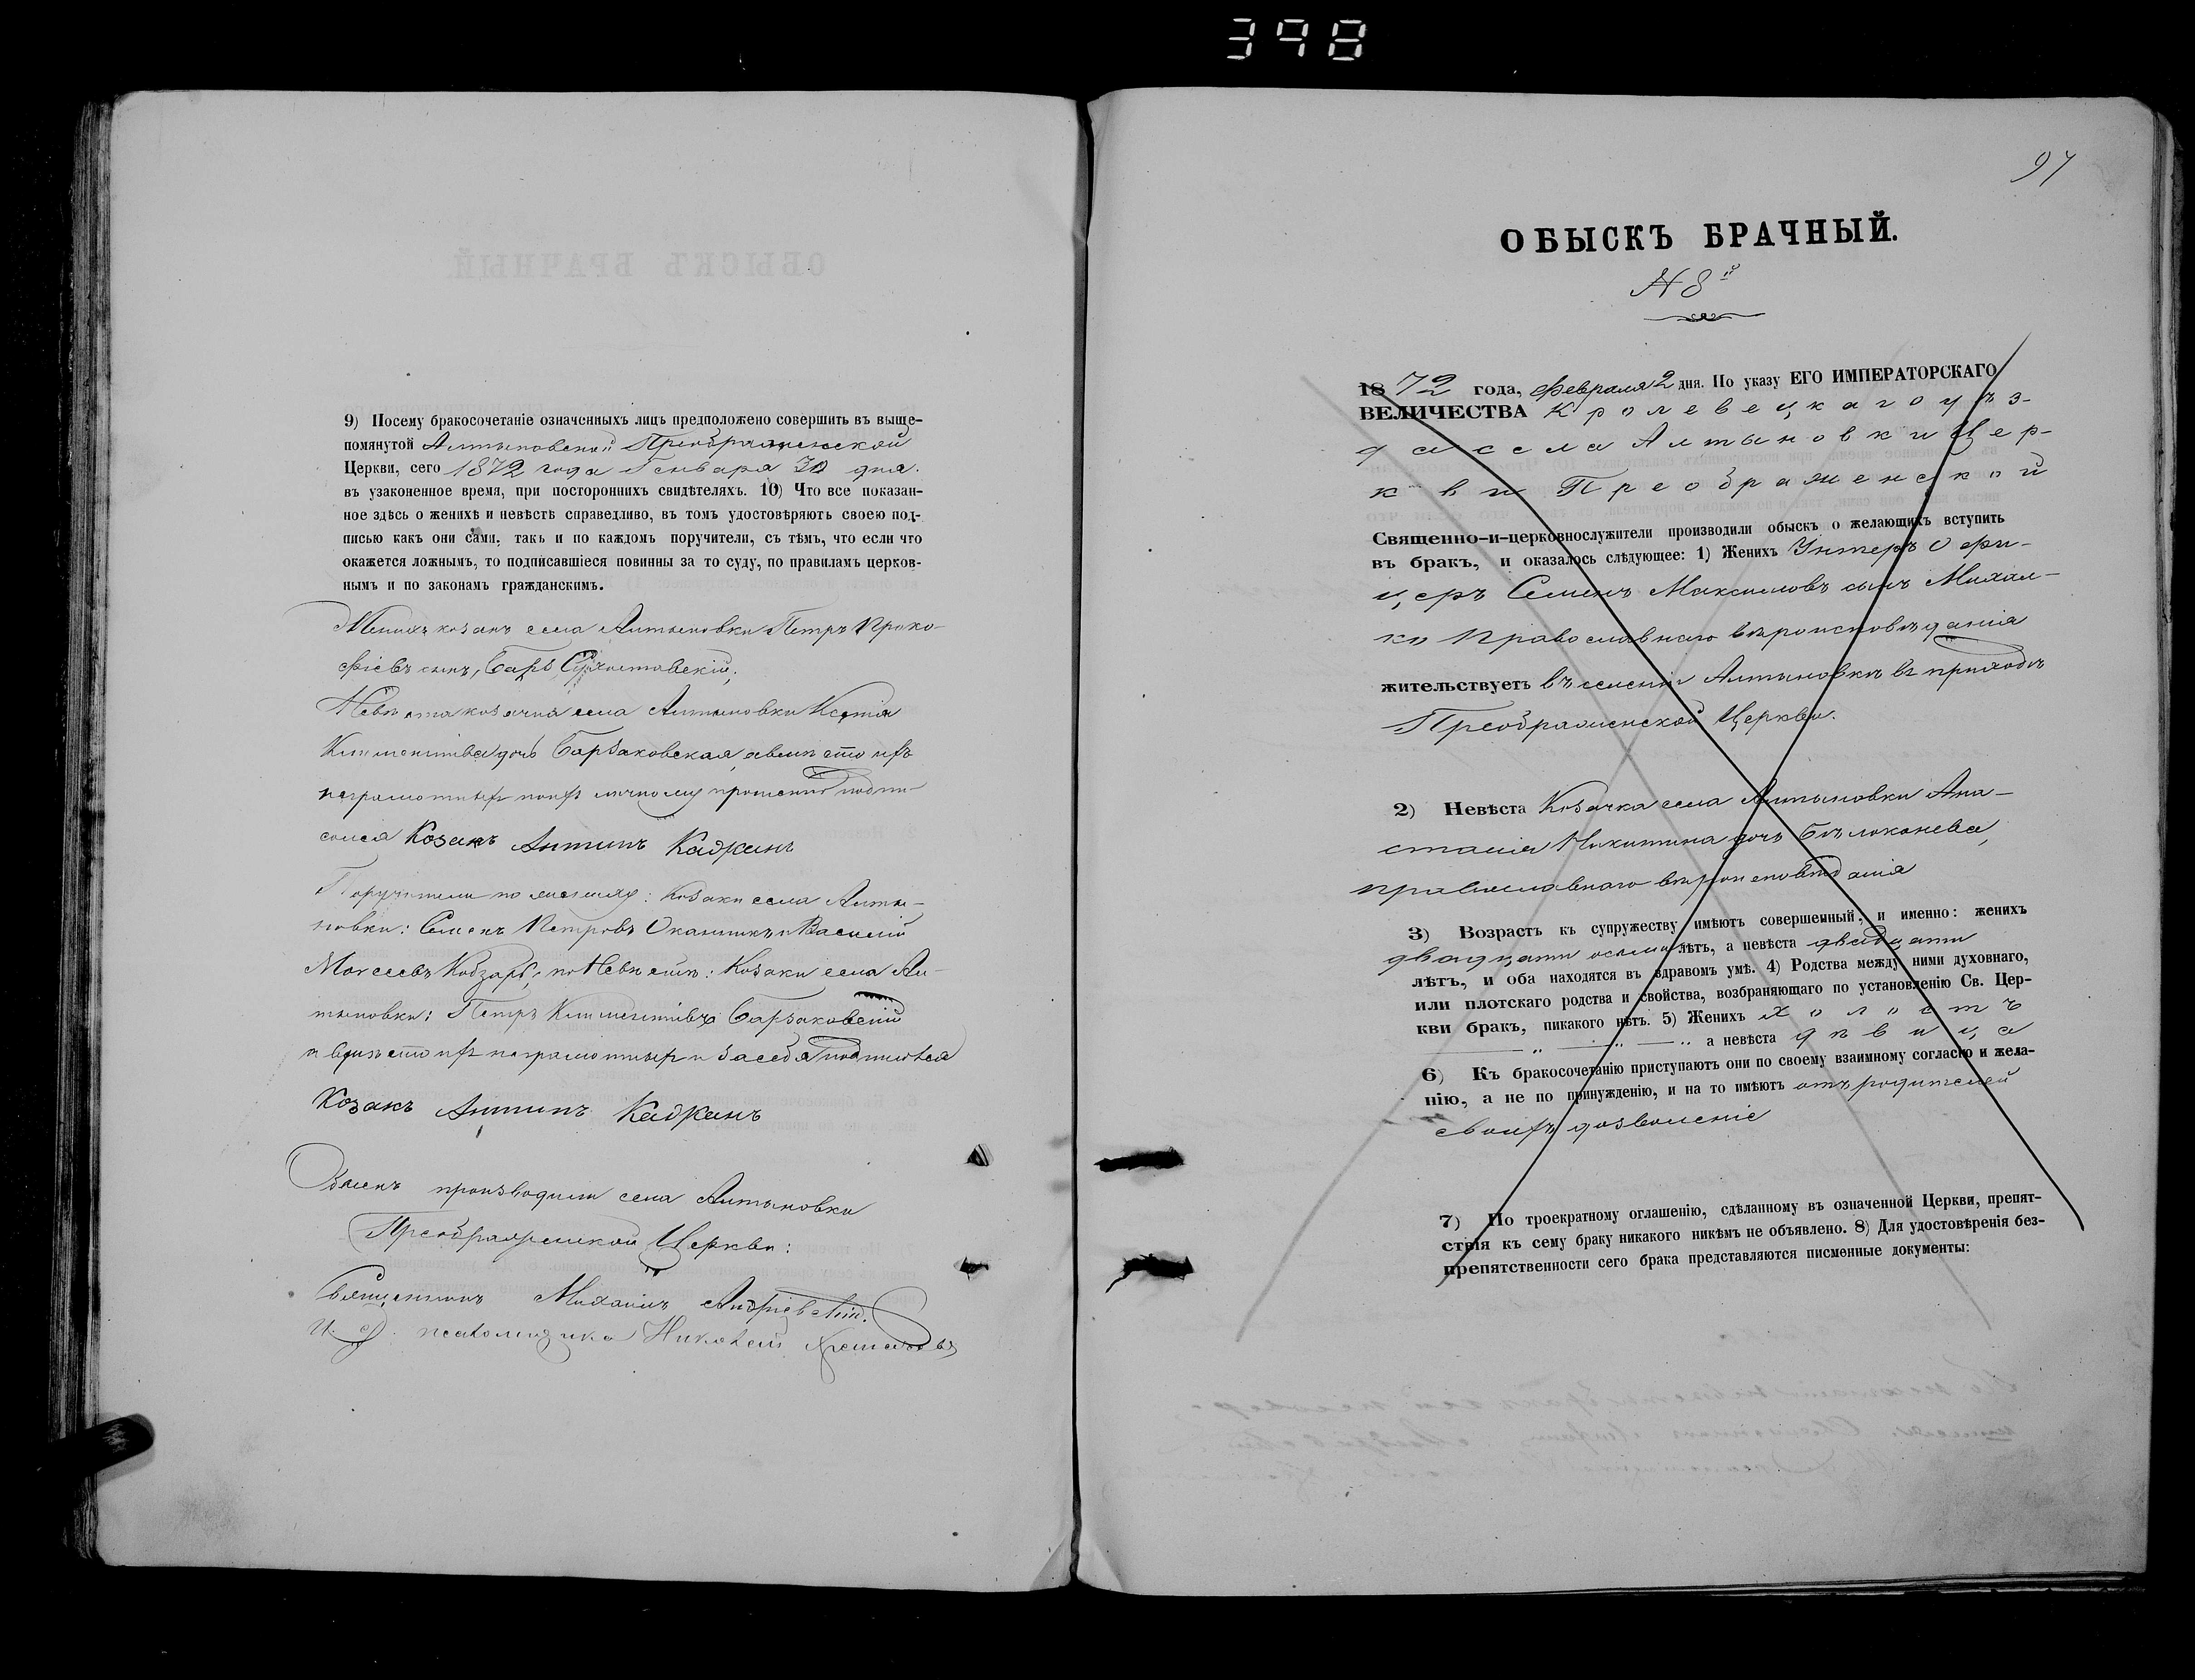 398
9) Посему бракосочетаніе означенныхъ лицъ предположено совершить въ выше-
помянутой Алтыновской Преображенской
Церкви, сего 1872 года Генваря 30 дня.
въ узаконенное время, при постороннихъ свидѣтеляхъ. 10) Что все показан-
ное здѣсь о женихѣ и невѣстѣ справедливо, въ томъ удостовѣряютъ своею под-
писью какъ они сами, такъ и по каждомъ поручители, съ тѣмъ, что если что
окажется ложнымъ, то подписавшіеся повинны за то суду, по правиламъ церков-
нымъ и по законамъ гражданскимъ.
Женихъ козакъ села Алтыновки Петръ Проко-
фіевъ сынъ,
Невѣста козачка села Алтыновки Ксенія
Климентіева дочь Барзаковская, а вмѣсто ихъ
неграмотныхъ по ихъ личному прошенію подпи-
сался Козакъ Антипъ Кадкинъ
Поручители по женихѣ: Козаки села Алты-
новки: Семенъ Петровъ и Василій
Моѵсеевъ Кобзарь; по Невѣстѣ: Козаки села Ал-
тыновки: Петръ Климентіевъ Барзаковскій
а вмѣсто ихъ неграмотныхъ и за себя подписался
Козакъ Антипъ Кадкинъ
Обыскъ производили села Алтыновки
Преображенской Церкви:
Священникъ Михаилъ Андріевскій.
И. д. псаломщика Николай
97
ОБЫСКЪ БРАЧНЫЙ.
№ 8й
1872 года, Февраля 2 дня. По указу ЕГО ИМПЕРАТОРСКАГО
ВЕЛИЧЕСТВА Кролевецкаго уѣз-
да села Алтыновки Цер-
кви Преображенской
Священно-и-церковнослужители производили обыскъ о желающихъ вступить
въ бракъ, и оказалось слѣдующее: 1) Женихъ Унтеръ Офи-
церъ Семенъ Максимовъ сынъ Михал-
ко Православнаго вѣроисповѣданія
жительствуетъ въ селеніи Алтыновкѣ въ приходѣ
Преображенской Церкви.
2) Невѣста Козачка села Алтыновки Ана-
стасія Никитина дочь Бѣлоконева,
православнаго вѣроисповѣданія
3) Возрастъ къ супружеству имѣютъ совершенный, и именно: женихъ
двадцати осьми лѣтъ, а невѣста двадцати
лѣтъ, и оба находятся въ здравомъ умѣ. 4) Родства между ними духовнаго,
или плотскаго родства и свойства, возбраняющаго по установленію Св. Цер-
кви бракъ, никакого нѣтъ. 5) Женихъ холостъ
а невѣста дѣвица
6) Къ бракосочетанію приступаютъ они по своему взаимному согласію и жела-
нію, а не по принужденію, и на то имѣютъ отъ родителей
своихъ дозволеніе
7) По троекратному оглашенію, сдѣланному въ означенной Церкви, препят-
ствія къ сему браку никакого никѣмъ не объявлено. 8) Для удостовѣренія без-
препятственности сего брака представляются писменные документы: